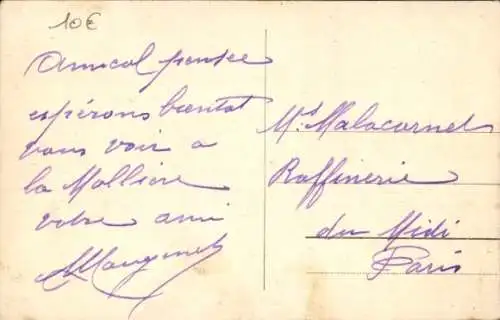 10€
Amical pensée
espérons bientot
vous voir a
la Mollière
votre ami
Mr Malacarnet
Raffinerie
du Midi
Paris